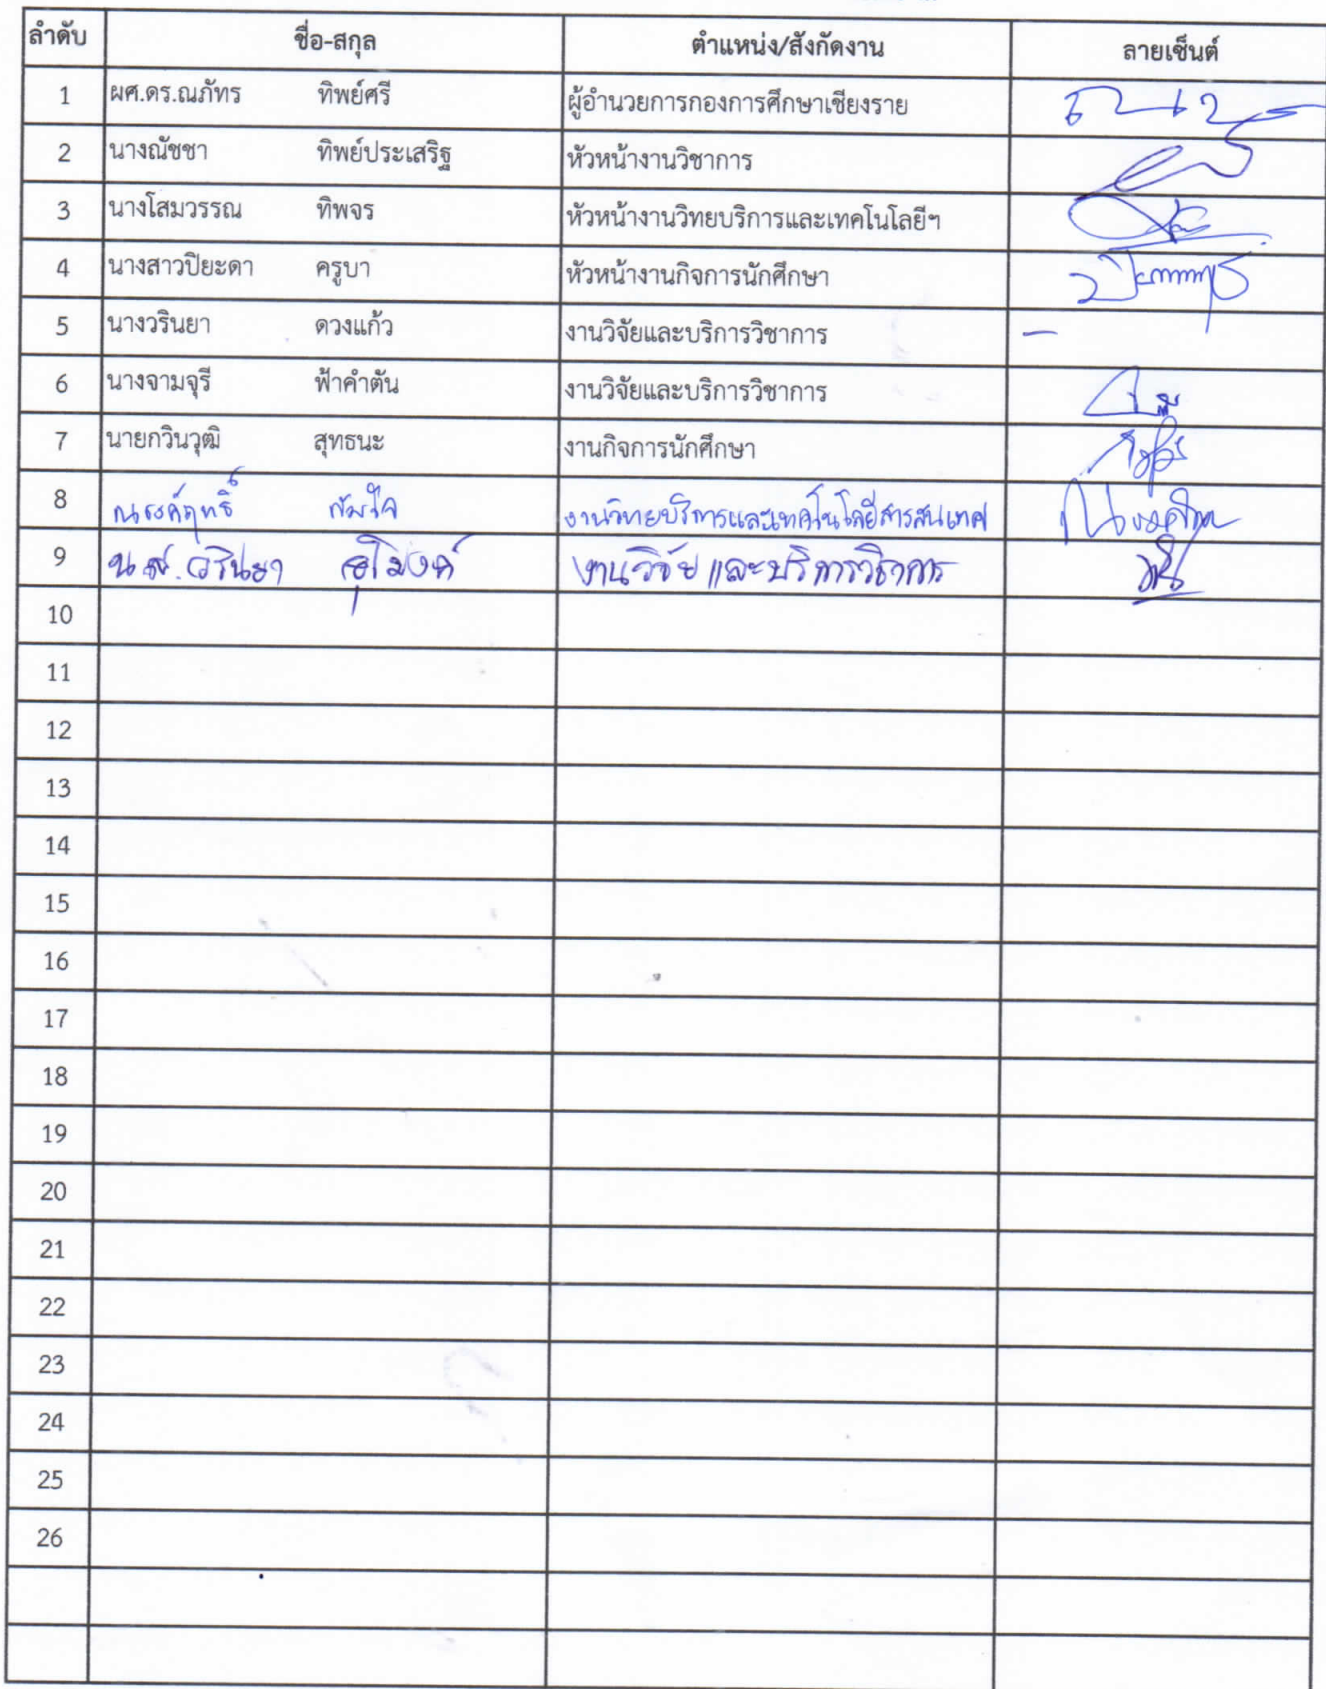 ลำดับ ชื่อ-สกุล ตำแหน่ง/สังกัดงาน ลายเซ็นต์
1 ผศ.ดร.ณภัทร ทิพย์ศรี ผู้อำนวยการกองการศึกษาเชียงราย
2 นางณัชชา ทิพย์ประเสริฐ หัวหน้างานวิชาการ
3 นางโสมวรรณ ทิพจร หัวหน้างานวิทยบริการและเทคโนโลยีฯ
4 นางสาวปิยะดา ครูบา หัวหน้างานกิจการนักศึกษา
5 นางวรินยา ดวงแก้ว งานวิจัยและบริการวิชาการ -
6 นางจามจุรี ฟ้าคำตัน งานวิจัยและบริการวิชาการ
7 นายกวินวุฒิ สุทธนะ งานกิจการนักศึกษา
8 ณรงค์ฤทธิ์ งานวิทยบริการและเทคโนโลยีสารสนเทศ
9 น.ส. วรินยา อุโมงค์ งานวิจัยและบริการวิชาการ
10
11
12
13
14
15
16
17
18
19
20
21
22
23
24
25
26